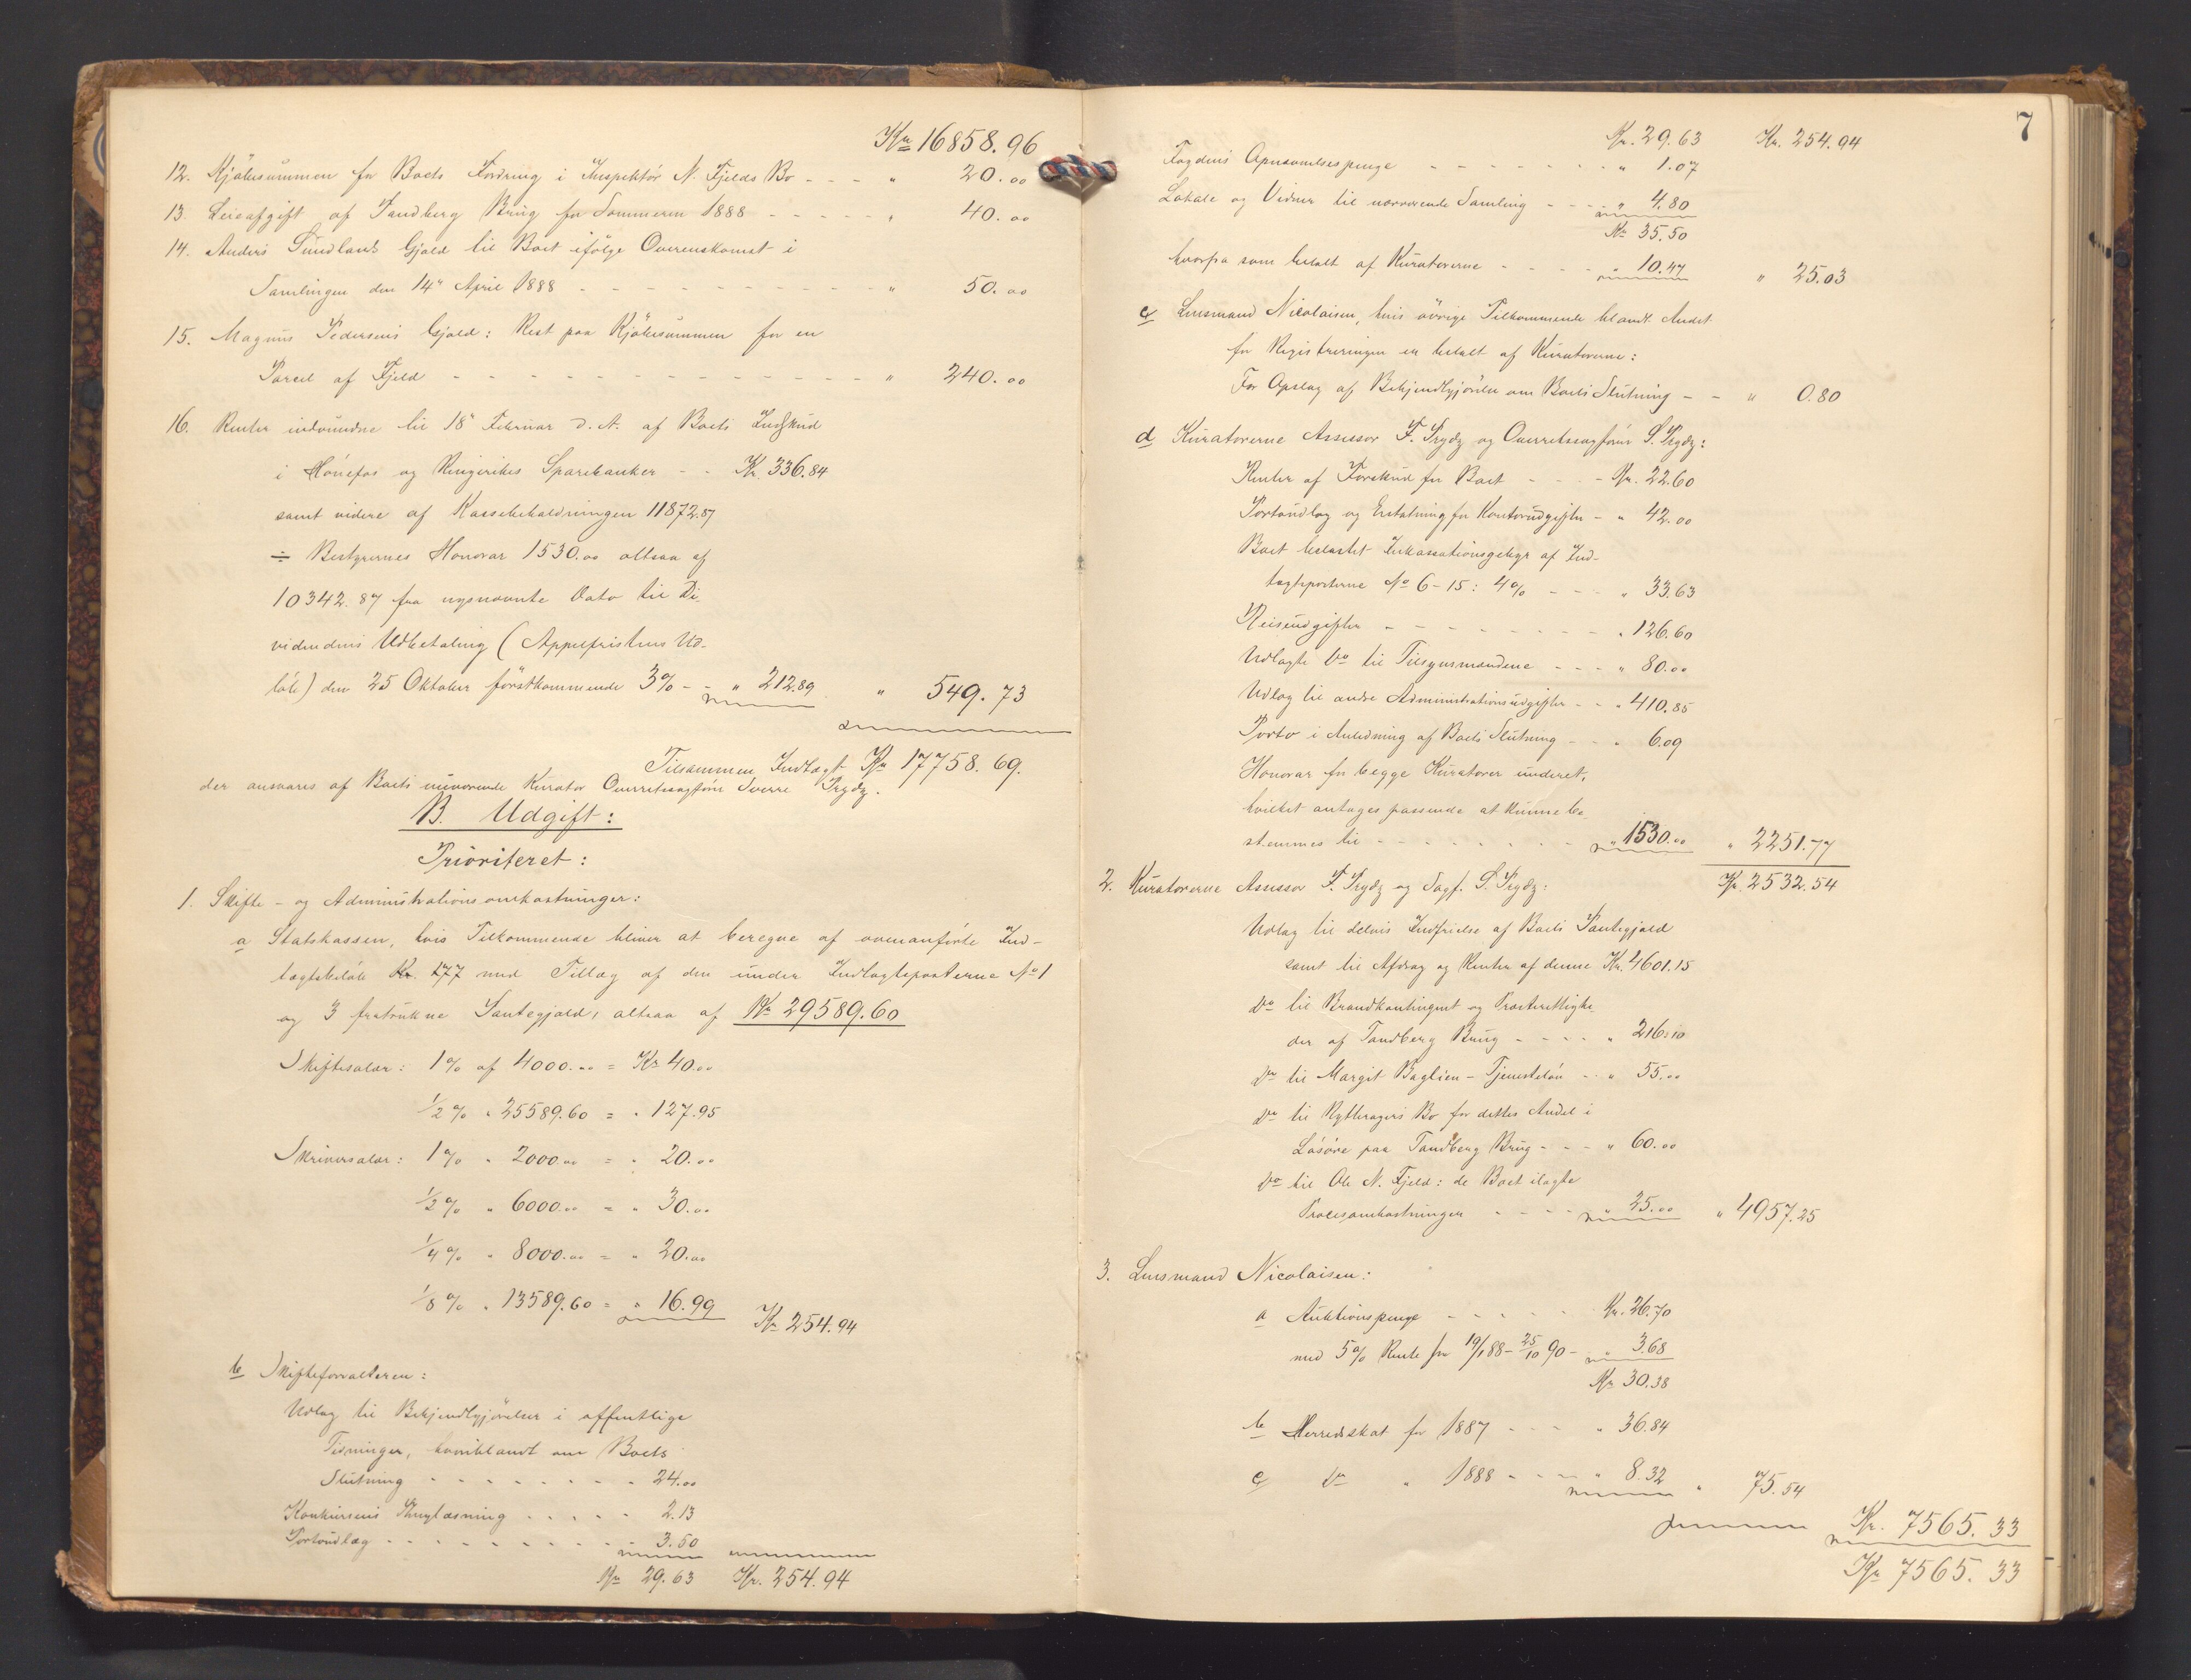 Kr 16858.96
12. Kjöbesummen for Boets Fordring i Inspektör N. Fjelds Bo - - - " 20.00
13. Leieafgift af Tandberg Brug for Sommeren 1888 - - - - - " 40.00
14. Anders Sundlands Gjæld til Boet ifölge Overenskomst i
Samlingen den 14de April 1888 - - - - - - - - - - " 50.00
15. Magnus Pedersens Gjæld: Rest paa Kjöbesummen for en
Parcel af Fjeld - - - - - - - - - - - - - - - " 240.00
16. Renter indvundne til 18de Februar d. A. af Boets Indskud
i Hönefos og Ringerikes Sparebanker - - Kr. 336.84
samt videre af Kassebeholdningen 11872.87
÷ Bestyrernes Honorar 1530.00 altsaa af
10342.87 fra nysnævnte Dato til Di
videndens Udbetaling (Appelfristens Ud-
löb) den 25 Oktober förstkommende 3% - - " 212.89 " 549.73
Tilsammen Indtægt Kr 17758.69.
der ansvares af Boets nuværende Kurator Overretssagförer Sverre Trydz.
B. Udgift:
Prioriteret:
1. Skifte - og Administrationsomkostninger:
a Statskassen, hvis Tilkommende bliver at beregne af ovenanförte Ind-
tægtsbelöb Kr. 177 med Tillæg af den under Indtægtsposterne No 1
og 3 fratrukne Pantegjæld, altsaa af Kr 29589.60
Skiftesalær: 1% af 4000.00 = Kr 40.00
1/2% " 25589.60 = " 127.95
Skriversalær: 1% " 2000.00 = " 20.00
1/2% " 6000.00 = " 30.00
1/4% " 8000.00 = " 20.00
1/8% " 13589.60 = " 16.99 Kr 254.94
b Skifteforvalteren:
Udlæg til Bekjendtgjörelser i offentlige
Tidninger, hvoriblandt om Boets
Slutning - - - - - - - - 24.00
Konkursens Thinglæsning - - - - - 2.13
Portoudlæg - - - - - - - - - - 3.50
Kr 29.63 Kr. 254.94
7
Kr. 29.63 Kr. 254.94
Fogdens Opnævnelsespenge - - - - - - - " 1.07
Lokale og Vidner til nærværende Samling - - - " 4.80
Kr 35.50
hvorfra som betalt af Kuratorerne - - - - " 10.47 " 25.03
c Lensmand Nicolaisen, hvis övrige Tilkommende blandt Andet
for Registreringen er betalt af Kuratorerne:
For Opslag af Bekjendtgjörelse om Boets Slutning - - " 0.80
d Kuratorerne Assessor F. Trydz og Overretssagförer S. Trydz:
Renter af Forskud for Boet - - - - Kr. 22.60
Portoudlæg og Erstatning for Kontorudgifter - " 42.00
Boet belastet Inkassationsgebyr af Ind-
tægtsposterne No 6-15: 4% - - - " 33.63
Reiseudgifter - - - - - - - - " 126.60
Udlagte Do til Tilsynsmændene - - - " 80.00
Udlæg til andre Administrationsudgifter - - " 410.85
Porto i Anledning af Boets Slutning - - " 6.09
Honorar for begge Kuratorer underet,
hvilket antages passende at kunne be
stemmes til - - - - - - - - " 1530.00 " 2251.77
Kr. 2532.54
2. Kuratorerne Assessor F. Trydz og Sagf. S. Trydz:
Udlæg til delvis Indfrielse af Boets Pantegjæld
samt til Afdrag og Renter af denne Kr. 4601.15
Do til Brandkontingent og
der af Tandberg Brug - - - - " 216.10
Do til Margit Baglien - Tjenestelön - - " 55.00
Do til Bo for dettes Andel i
Lösöre paa Tandberg Brug - - - " 60.00
Do til Ole N. Fjeld: de Boet ilagte
Procesomkostninger - - - - " 25.00 " 4957.25
3. Lensmand Nicolaisen:
a Auktionspenge - - - - - Kr. 26.70
med 5% Rente fra 19/1 88 - 25/10 90 - " 3.68
Kr 30.38
b Herredsskat for 1887 - - - " 36.84
c Do " 1888 - - - " 8.32 " 75.54
Kr. 7565.33
Kr 7565.33